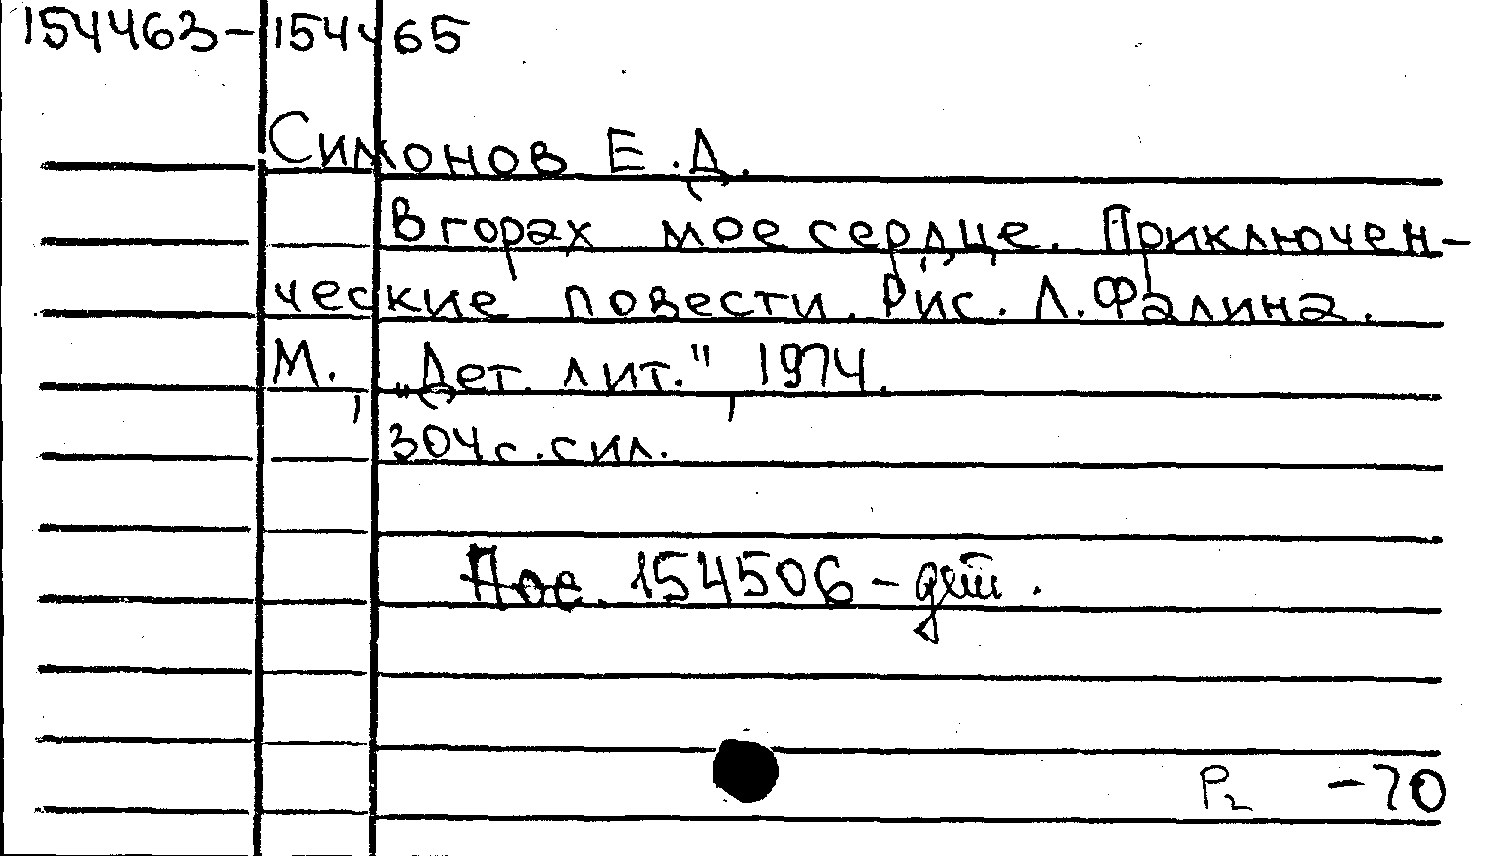 154463-154465
Симонов Е.Д.
В горах мое сердце. Приключен-
ческие повести. Рис. Л. Фалина.
М., „Дет. лит.", 1974.
304 с. с ил.
154506 - дет.
Р2 -70